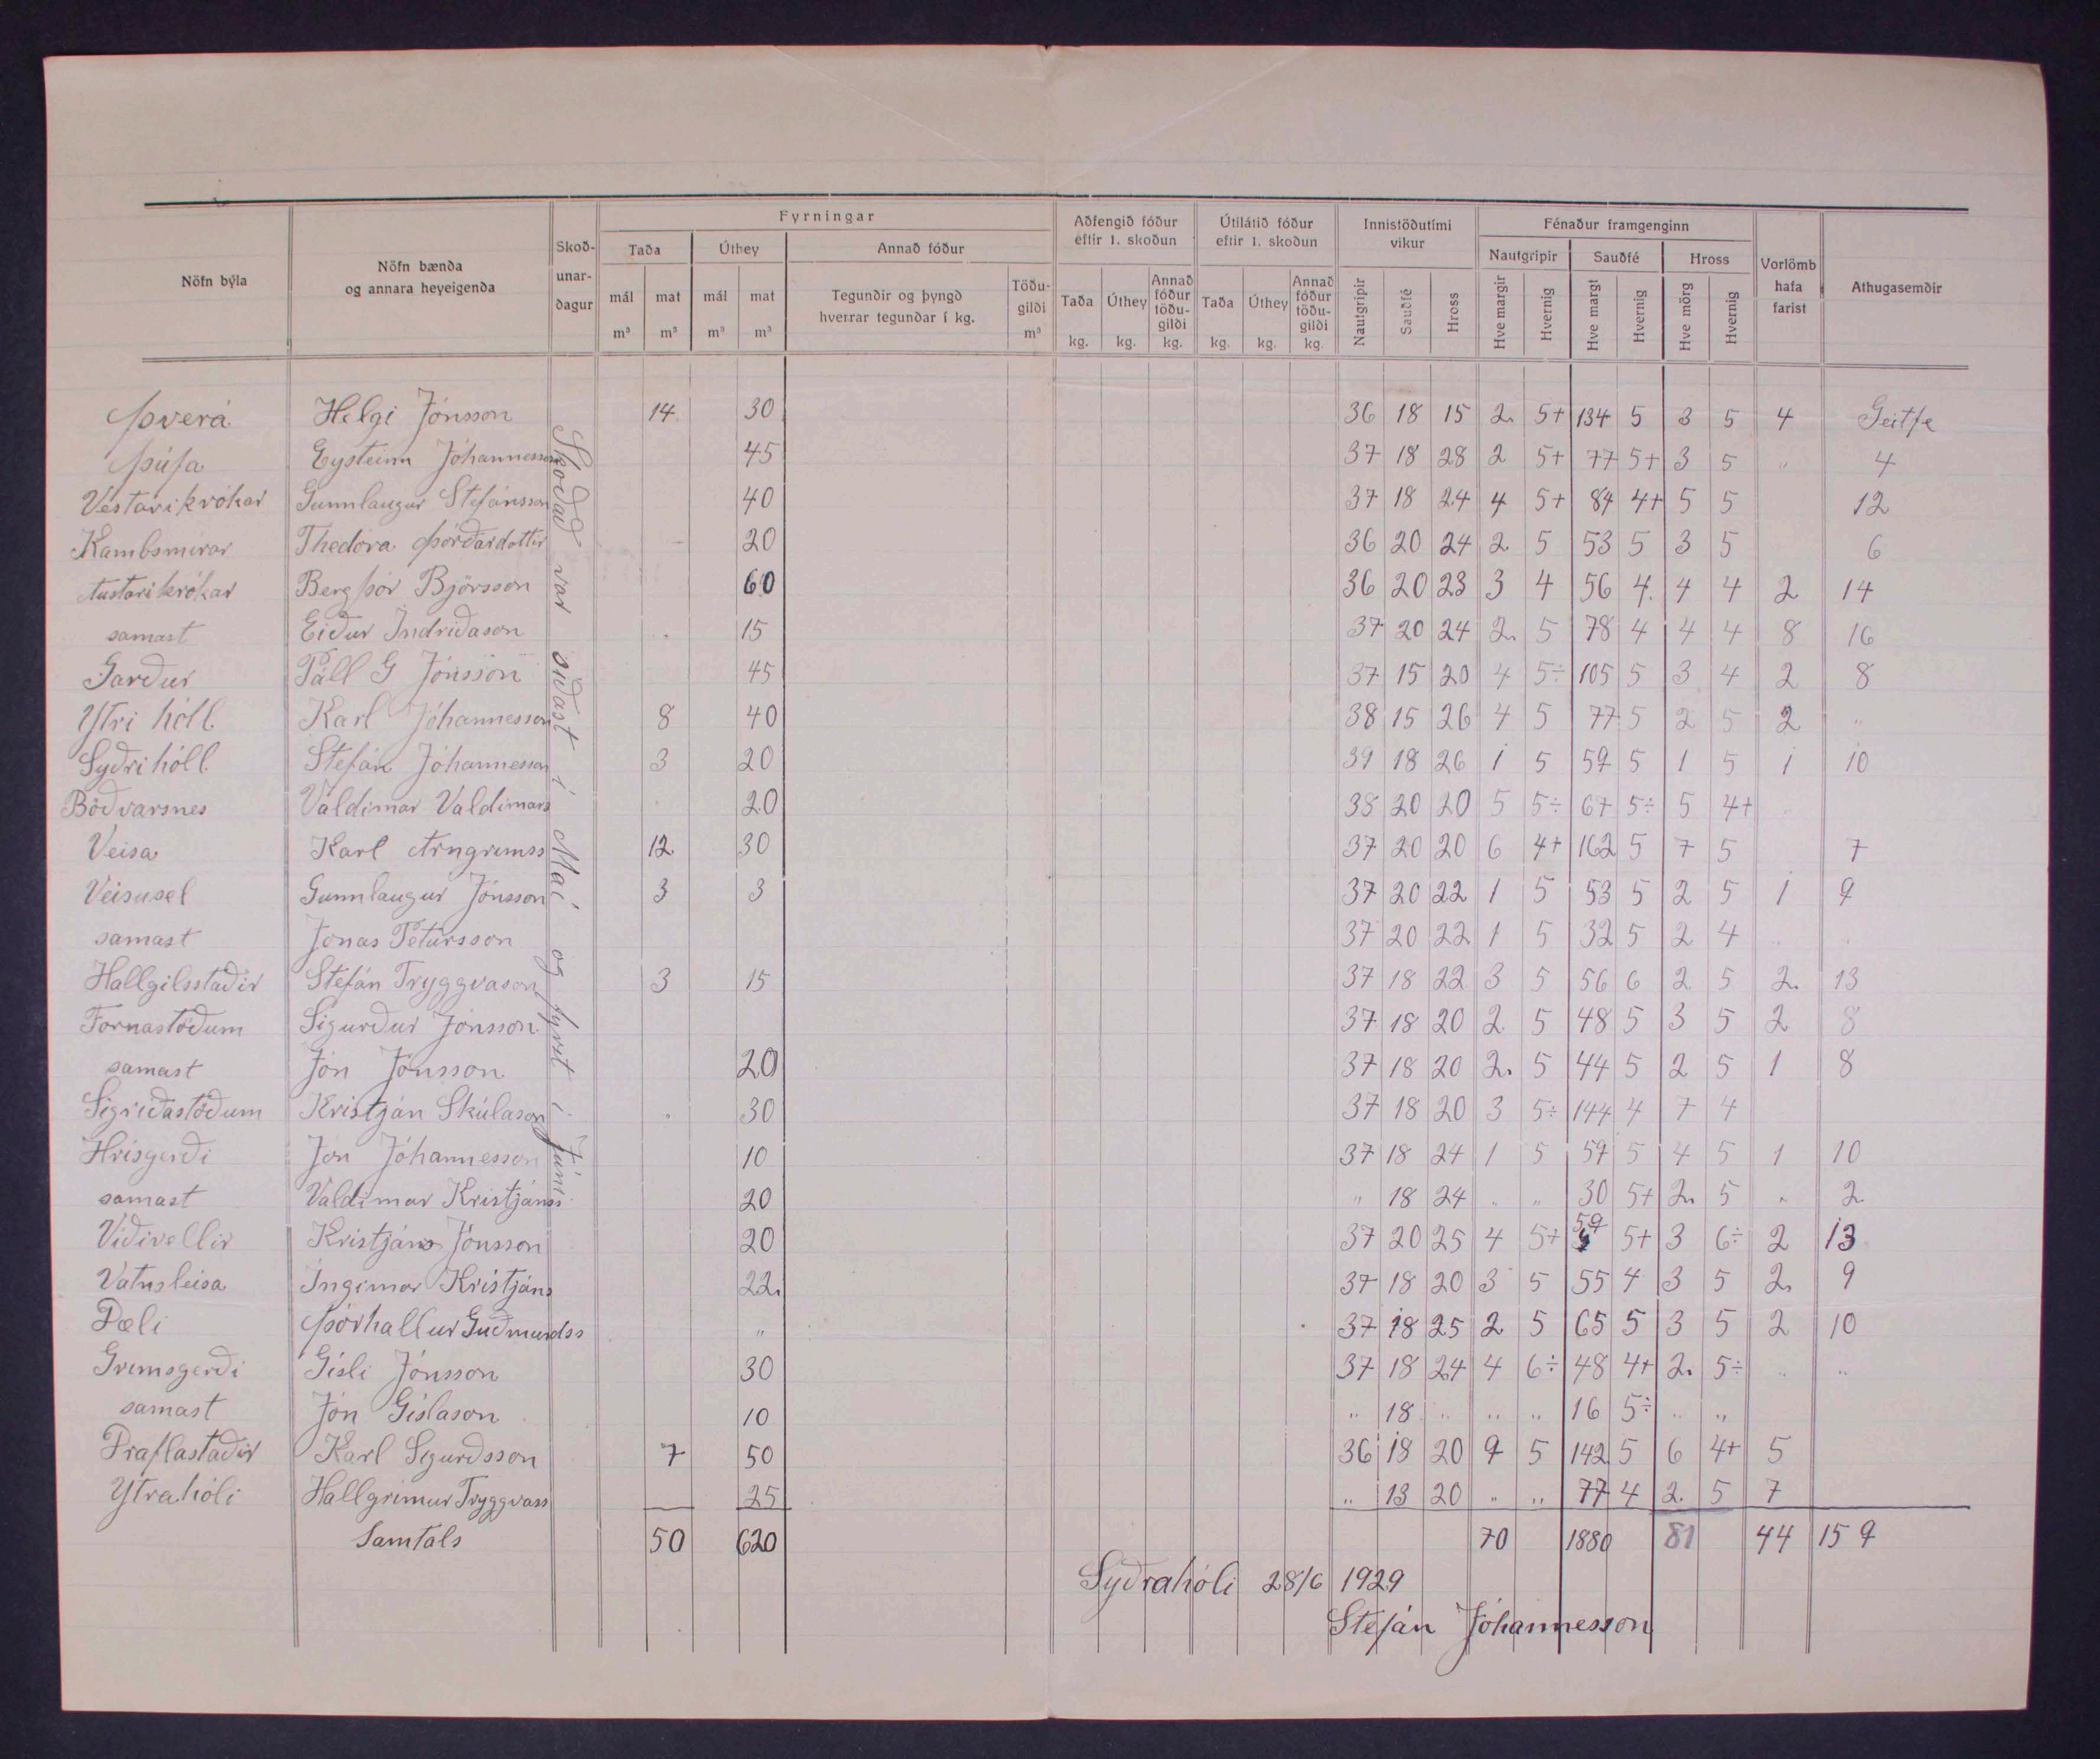 Nöfn býla
Nöfn bænda og annara heyeigenda
Skoð-unar-dagur
Fyrningar
Taða Úthey Annað fóður
mál m³ mat m³ mál m³ mat m³
Tegundir og þyngd hverrar tegundar í kg.
Töðu-gildi m³
Aðfengið fóður eftir 1. skoðun
Taða kg. Úthey kg. Annað fóður töðu-gildi kg.
Útilátið fóður eftir 1. skoðun
Taða kg. Úthey kg. Annað fóður töðu-gildi kg.
Innistöðutími vikur
Nautgripir Sauðfé Hross
Fénaður framgenginn
Nautgripir Sauðfé Hross
Hve margir Hvernig Hve margt Hvernig Hve mörg Hvernig
Vorlömb hafa farist
Athugasemdir
Skoðað var síðast í Maí og fyrst í Júní
Þverá Helgi Jónsson 14 30 36 18 15 2 5+ 134 5 3 5 4 Geitfe
Þúfa Eysteinn Jóhannesson 45 37 18 28 2 5+ 77 5+ 3 5 " 4
Vestarikrókar Gunnlaugur Stefánsson 40 37 18 24 4 5+ 84 4+ 5 5 12
Kambsmírar Thedóra Þórðardottir 20 36 20 24 2 5 53 5 3 5 6
Austarikrókar Bergþór Björsson 60 36 20 23 3 4 56 4 4 4 2 14
samast Eiður Indriðason 15 37 20 24 2 5 78 4 4 4 8 16
Garður Páll G Jónsson 45 37 15 20 4 5÷ 105 5 3 4 2 8
Ytri hóll Karl Jóhannesson 8 40 38 15 26 4 5 77 5 2 5 2 "
Syðri hóll Stefán Jóhannesson 3 20 39 18 26 1 5 59 5 1 5 1 10
Böðvarsnes Valdimar Valdimars 20 38 20 20 5 5÷ 67 5÷ 5 4+
Veisa Karl Arngrimss 12 30 37 20 20 6 4+ 162 5 7 5 7
Veisusel Gunnlaugur Jónsson 3 3 37 20 22 1 5 53 5 2 5 1 9
samast Jónas Petursson 37 20 22 1 5 32 5 2 4
Hallgilsstaðir Stefán Tryggvason 3 15 37 18 22 3 5 56 6 2 5 2 13
Fornastöðum Sigurður Jónsson 37 18 20 2 5 48 5 3 5 2 8
samast Jón Jónsson 20 37 18 20 2 5 44 5 2 5 1 8
Sigriðastöðum Kristján Skúlason " 30 37 18 20 3 5÷ 144 4 7 4
Hrísgerði Jón Jóhannesson 10 37 18 24 1 5 59 5 4 5 1 10
samast Valdimar Kristjánss 20 " 18 24 " " 30 5+ 2 5 " 2
Viðivellir Kristjáns Jónsson 20 37 20 25 4 5+ 59 5+ 3 6÷ 2 13
Vatnsleisa Ingimar Kristjáns 22 37 18 20 3 5 55 4 3 5 2 9
Dæli Þórhallur Guðmundss " 37 18 25 2 5 65 5 3 5 2 10
Grimsgerði Gísli Jónsson 30 37 18 24 4 6÷ 48 4+ 2 5÷ " "
samast Jón Gíslason 10 " 18 " " " 16 5÷ " "
Draflastaðir Karl Sigurðsson 7 50 36 18 20 9 5 142 5 6 4+ 5
Ytrahóli Hallgrimur Tryggvass 25 " 13 20 " " 77 4 2 5 7
Samtals 50 620 70 1880 81 44 159
Syðrahóli 28/6 1929
Stefán Jóhannesson